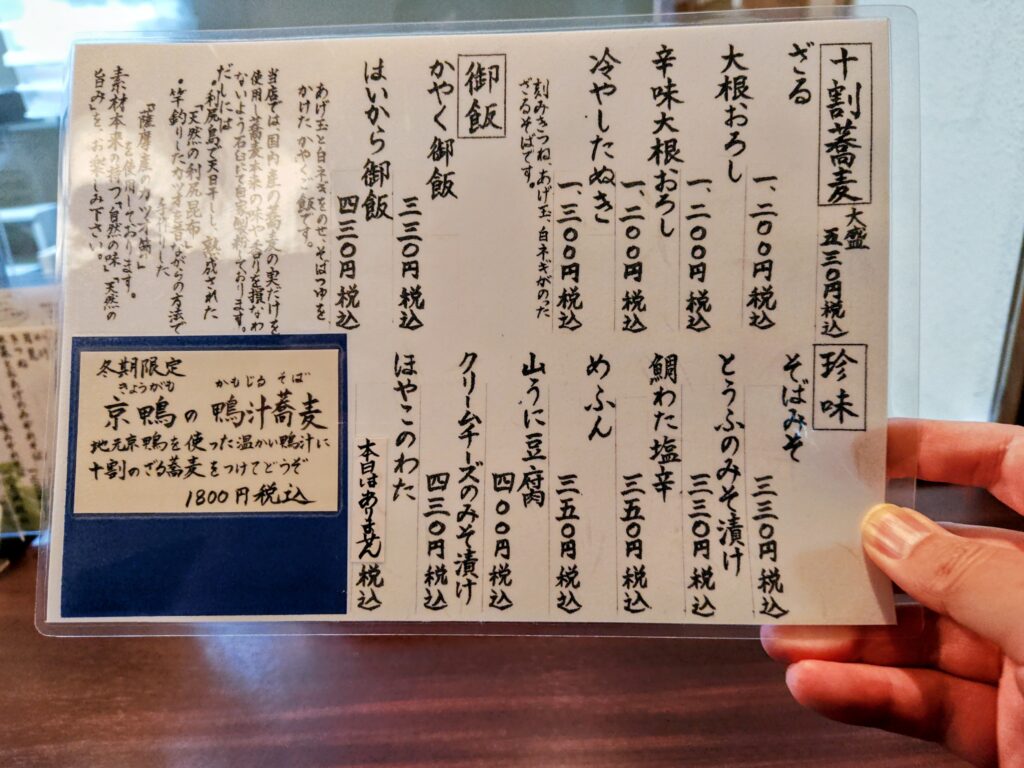 十割蕎麦
大盛
五三〇円税込
ざる
一、二〇〇円 税込
大根おろし
一、二〇〇円 税込
辛味大根おろし
一、二〇〇円 税込
冷やしたぬき
一、三〇〇円 税込
刻みきつね、あげ玉、白ネギがのった
ざるそばです。
御飯
かやく御飯
三三〇円 税込
はいから御飯
四三〇円 税込
あげ玉と白ネギをのせ、そばつゆを
かけた、かやくご飯です。
当店では国内産の蕎麦の実だけを
使用し蕎麦本来の味や香りを損なわ
ないよう石臼にて自家製粉しております。
だしには
・利尻島で天日干し、熟成された
「天然の利尻昆布」
・竿釣りしたカツオを昔ながらの方法で
「薩摩産のカツオ節」
を使用しております。
素材本来の持つ「自然の味」「天然の
旨み」を、お楽しみ下さい。
珍味
そばみそ
三三〇円 税込
とうふのみそ漬け
三三〇円 税込
鯛わた塩辛
三五〇円 税込
めふん
三五〇円 税込
山うに豆腐
四〇〇円 税込
クリームチーズのみそ漬け
四三〇円 税込
ほやこのわた
本日はありません 税込
冬期限定
きょうがも かもじる そば
京鴨の 鴨汁蕎麦
地元京鴨を使った温かい鴨汁に
十割のざる蕎麦をつけてどうぞ
1800円税込